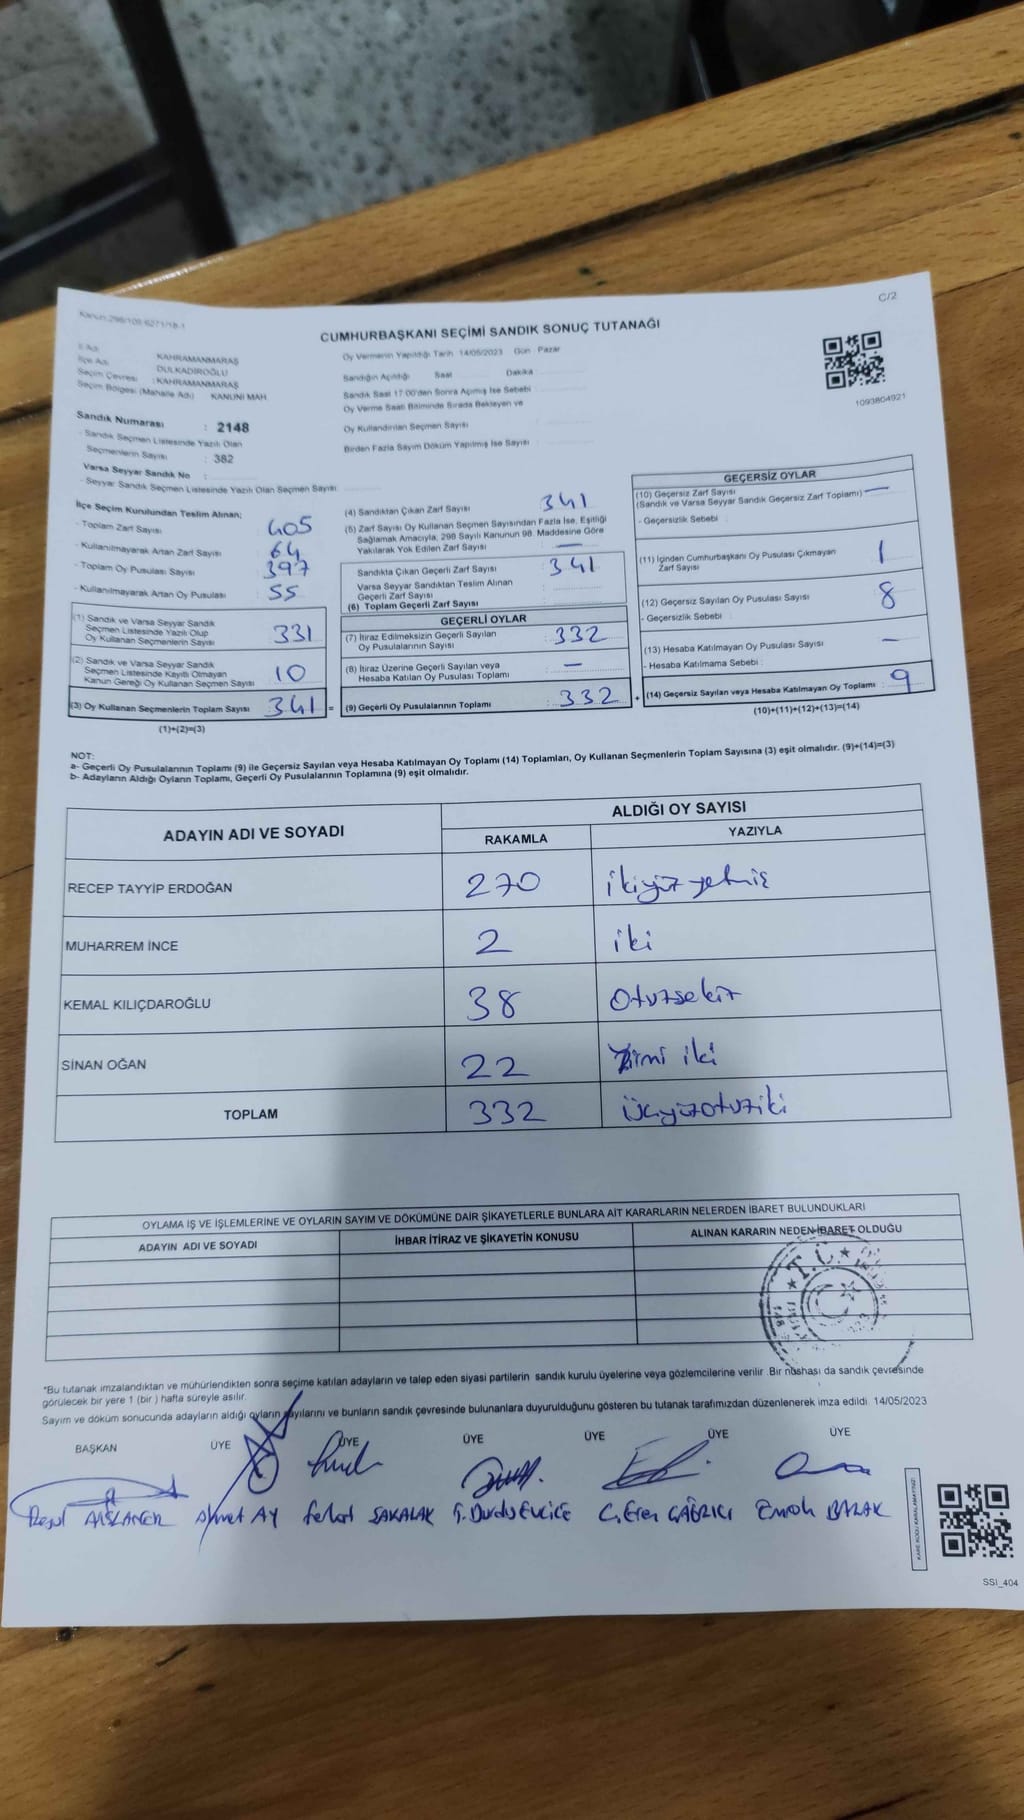 Kanun:298/109 6271/18-1
C/2
CUMHURBAŞKANI SEÇİMİ SANDIK SONUÇ TUTANAĞI
İl Adı KAHRAMANMARAŞ
İlçe Adı DULKADİROĞLU
Seçim Çevresi : KAHRAMANMARAŞ
Seçim Bölgesi (Mahalle Adı) KANUNİ MAH.
Sandık Numarası : 2148
- Sandık Seçmen Listesinde Yazılı Olan
Seçmenlerin Sayısı : 382
Varsa Seyyar Sandık No :
- Seyyar Sandık Seçmen Listesinde Yazılı Olan Seçmen Sayısı
Oy Vermenin Yapıldığı Tarih 14/05/2023 Gün : Pazar
Sandığın Açıldığı Saat Dakika
Sandık Saat 17.00'den Sonra Açılmış İse Sebebi
Oy Verme Saati Bitiminde Sırada Bekleyen ve
Oy Kullandırılan Seçmen Sayısı
Birden Fazla Sayım Döküm Yapılmış İse Sayısı
1093804921
İlçe Seçim Kurulundan Teslim Alınan;
- Toplam Zarf Sayısı 405
- Kullanılmayarak Artan Zarf Sayısı 64
- Toplam Oy Pusulası Sayısı 397
- Kullanılmayarak Artan Oy Pusulası 55
(1) Sandık ve Varsa Seyyar Sandık
Seçmen Listesinde Yazılı Olup
Oy Kullanan Seçmenlerin Sayısı 331
(2) Sandık ve Varsa Seyyar Sandık
Seçmen Listesinde Kayıtlı Olmayan
Kanun Gereği Oy Kullanan Seçmen Sayısı 10
(3) Oy Kullanan Seçmenlerin Toplam Sayısı 341 =
(1)+(2)=(3)
(4) Sandıktan Çıkan Zarf Sayısı 341
(5) Zarf Sayısı Oy Kullanan Seçmen Sayısından Fazla İse, Eşitliği
Sağlamak Amacıyla, 298 Sayılı Kanunun 98. Maddesine Göre
Yakılarak Yok Edilen Zarf Sayısı —
Sandıkta Çıkan Geçerli Zarf Sayısı : 341
Varsa Seyyar Sandıktan Teslim Alınan
Geçerli Zarf Sayısı
(6) Toplam Geçerli Zarf Sayısı
GEÇERLİ OYLAR
(7) İtiraz Edilmeksizin Geçerli Sayılan
Oy Pusulalarının Sayısı : 332
(8) İtiraz Üzerine Geçerli Sayılan veya
Hesaba Katılan Oy Pusulası Toplamı : —
(9) Geçerli Oy Pusulalarının Toplamı : 332 +
GEÇERSİZ OYLAR
(10) Geçersiz Zarf Sayısı
(Sandık ve Varsa Seyyar Sandık Geçersiz Zarf Toplamı) —
- Geçersizlik Sebebi
(11) İçinden Cumhurbaşkanı Oy Pusulası Çıkmayan
Zarf Sayısı 1
(12) Geçersiz Sayılan Oy Pusulası Sayısı 8
- Geçersizlik Sebebi
(13) Hesaba Katılmayan Oy Pusulası Sayısı —
- Hesaba Katılmama Sebebi :
(14) Geçersiz Sayılan veya Hesaba Katılmayan Oy Toplamı : 9
(10)+(11)+(12)+(13)=(14)
NOT:
a- Geçerli Oy Pusulalarının Toplamı (9) ile Geçersiz Sayılan veya Hesaba Katılmayan Oy Toplamı (14) Toplamları, Oy Kullanan Seçmenlerin Toplam Sayısına (3) eşit olmalıdır. (9)+(14)=(3)
b- Adayların Aldığı Oyların Toplamı, Geçerli Oy Pusulalarının Toplamına (9) eşit olmalıdır.
ADAYIN ADI VE SOYADI ALDIĞI OY SAYISI
RAKAMLA YAZIYLA
RECEP TAYYİP ERDOĞAN 270 ikiyüz yetmiş
MUHARREM İNCE 2 iki
KEMAL KILIÇDAROĞLU 38 otuzsekiz
SİNAN OĞAN 22 Yirmi iki
TOPLAM 332 üçyüzotuziki
OYLAMA İŞ VE İŞLEMLERİNE VE OYLARIN SAYIM VE DÖKÜMÜNE DAİR ŞİKAYETLERLE BUNLARA AİT KARARLARIN NELERDEN İBARET BULUNDUKLARI
ADAYIN ADI VE SOYADI İHBAR İTİRAZ VE ŞİKAYETİN KONUSU ALINAN KARARIN NEDEN İBARET OLDUĞU
T.C.
*Bu tutanak imzalandıktan ve mühürlendikten sonra seçime katılan adayların ve talep eden siyasi partilerin sandık kurulu üyelerine veya gözlemcilerine verilir. Bir nüshası da sandık çevresinde
görülecek bir yere 1 (bir ) hafta süreyle asılır.
Sayım ve döküm sonucunda adayların aldığı oyların sayılarını ve bunların sandık çevresinde bulunanlara duyurulduğunu gösteren bu tutanak tarafımızdan düzenlenerek imza edildi. 14/05/2023
BAŞKAN ÜYE ÜYE ÜYE ÜYE ÜYE ÜYE
Resul ARSLANER Ahmet AY Ferhat SAKALAK Emrah BAZAK
KARE KODU KARALAMAYINIZ!
SSI_404